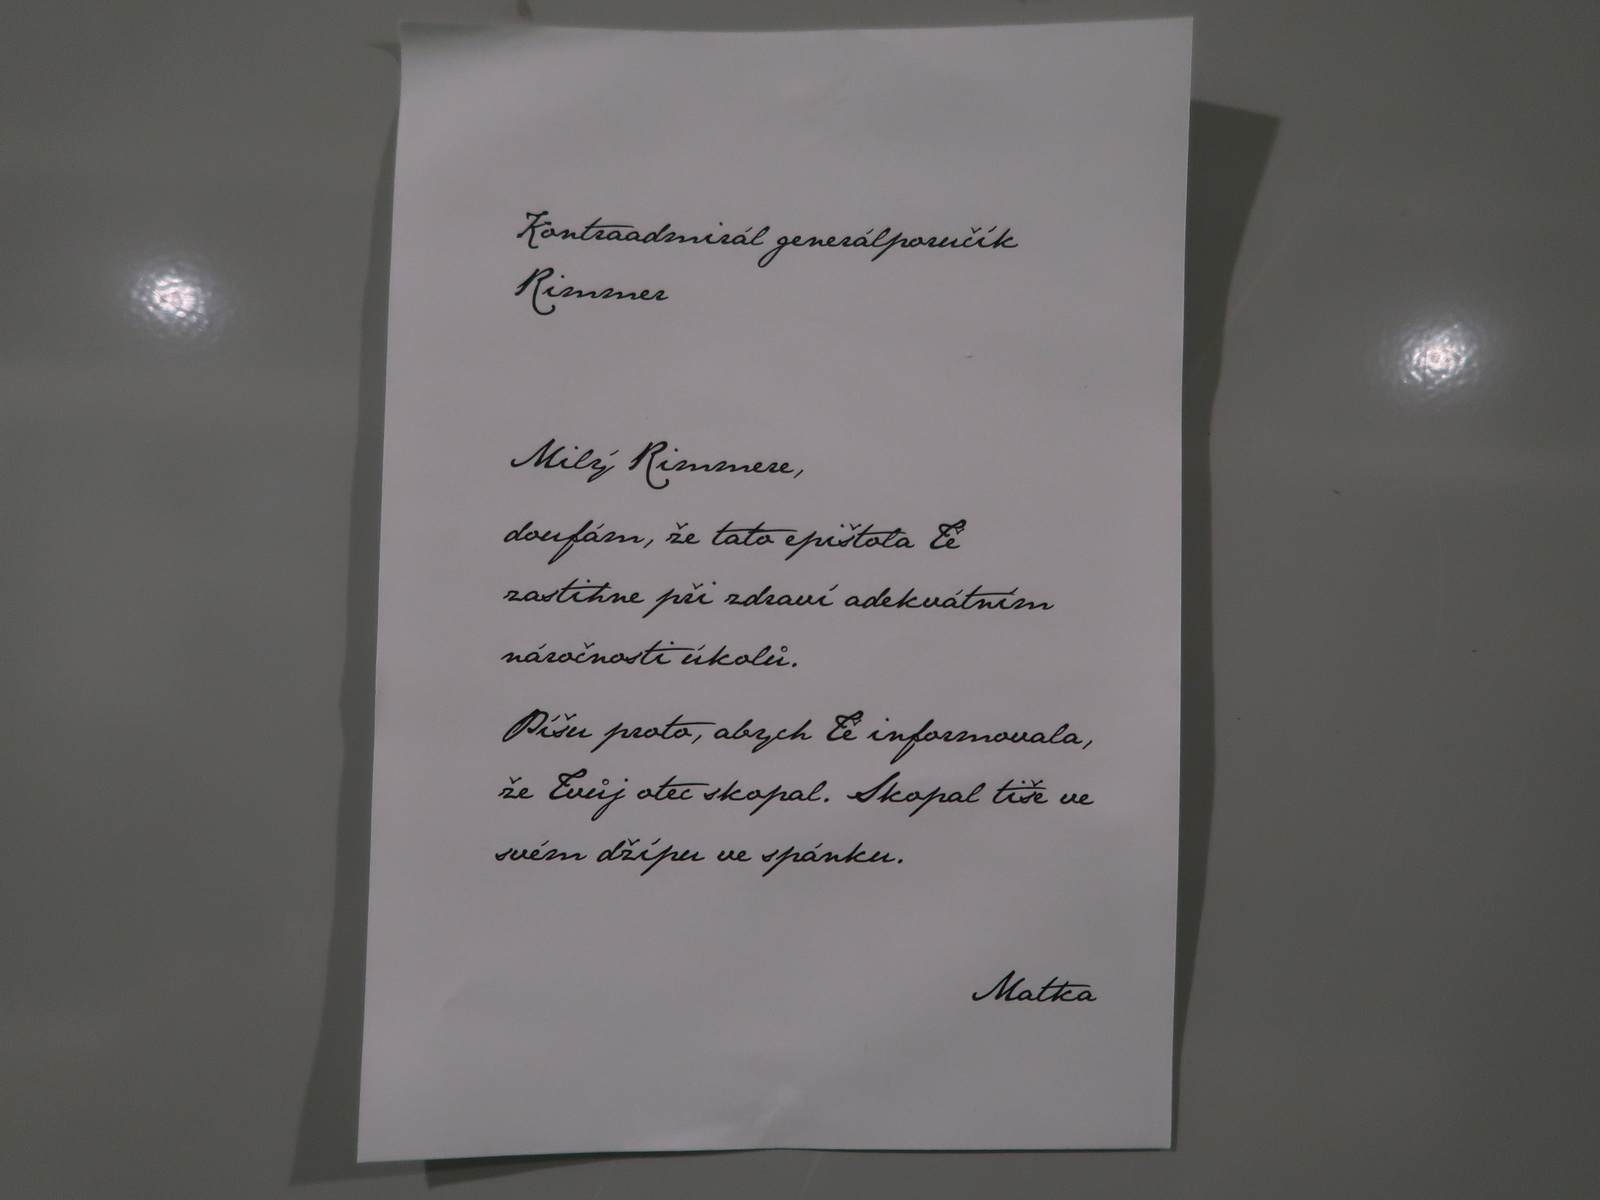 Kontraadmirál generálporučík
Rimmer
Milý Rimmere,
doufám, že tato epištola Tě
zastihne při zdraví adekvátním
náročnosti úkolů.
Píšu proto, abych Tě informovala,
že Tvůj otec skopal. Skopal tiše ve
svém džípu ve spánku.
Matka